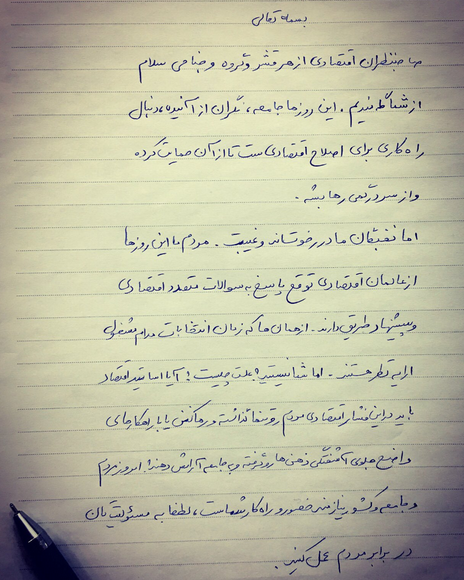 بسمه تعالی
صاحبنظران اقتصادی از هر قشر و گروه و جناحی سلام
از شما گله مندیم. این روزها جامعه، نگران از آینده، دنبال
راه کاری برای اصلاح اقتصادی ست تا از آن حمایت کرده
و از سردرگمی رها بشه.
اما نخبگان ما در رخوتند و غیبت. مردم ما این روزها
از عالمان اقتصادی توقع پاسخ به سوالات متعدد اقتصادی
و پیشنهاد طریق دارند. از همان ها که زمان انتخابات مدام مشغول
ارایه نظر هستند. اما شما نیستید! علت چیست؟ آیا اساتید اقتصاد
باید در این فشار اقتصادی مردم رو تنها گذاشته و رها کنن یا با راهکارهای
واضح جلوی آشفتگی ذهن ها رو گرفته و به جامعه آرامش دهند؟ امروز مردم
و جامعه و کشور نیازمند حضور و راه کار شماست، لطفا به مسئولیت تان
در برابر مردم عمل کنید.